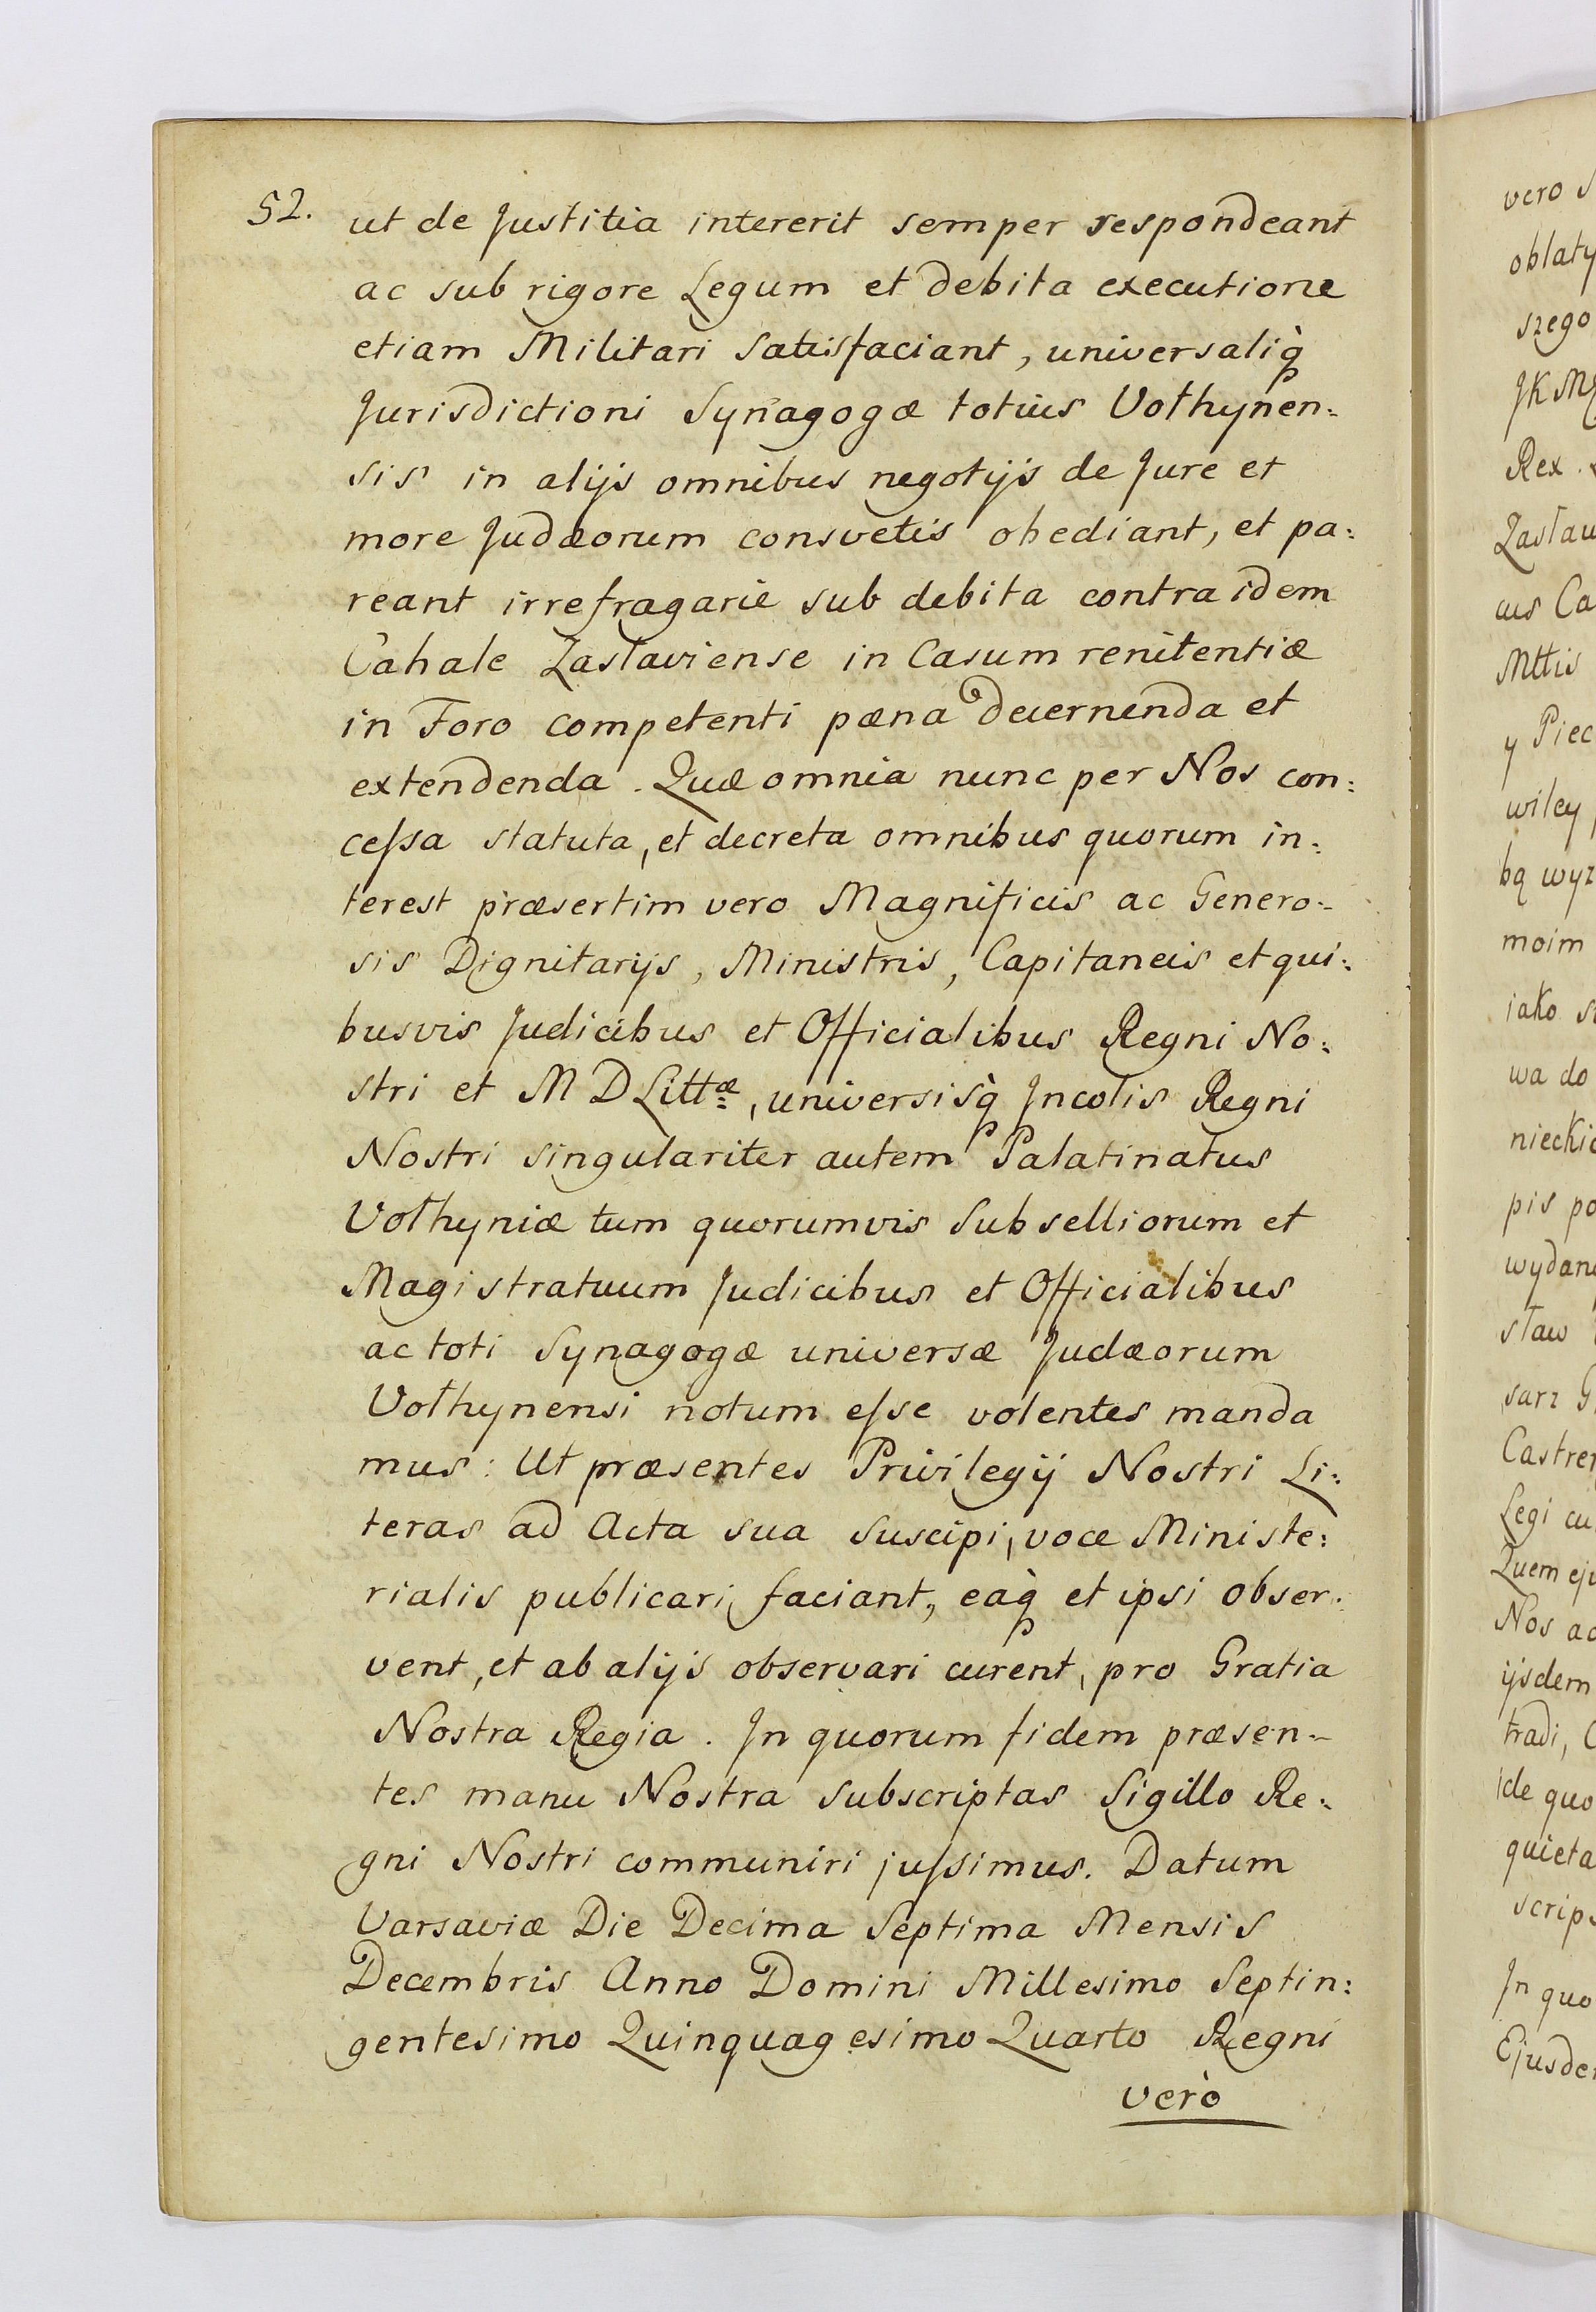 52.
ut de Justitia intererit semper respondeant
ac sub rigore Legum et debita executione
etiam Militari satisfaciant, universaliq̀
Jurisdictioni Synagogæ totius Vołhynen:
sis in alijs omnibus negotijs de Jure et
more Judæorum consvetis obediant, et pa:
reant irrefragariè sub debita contra idem
Cahale Zasłaviense in Casum renitentiæ
in Foro competenti pæna decernenda et
extendenda. Quæ omnia nunc per Nos con:
ceſsa statuta, et decreta omnibus quorum in:
terest præsertim vero Magnificis ac Genero:
sis Dignitarijs, Ministris, Capitaneis et qui:
busvis Judicibus et Officialibus Regni No:
stri et M D Littæ, universisq̀ Incolis Regni
Nostri singulariter autem Palatinatus
Vołhyniæ tum quorumvis Subselliorum et
Magistratuum Judicibus et Officialibus
ac toti Synagogæ universæ Judæorum
Vołhynensi notum eſse volentes manda
mus: Ut præsentes Privilegij Nostri Li:
teras ad Acta sua suscipi, voce Ministe:
rialis publicari faciant, eaq̀ et ipsi obser:
vent, et ab alijs observari curent, pro Gratia
Nostra Regia. In quorum fidem præsen:
tes manu Nostra subscriptas Sigillo Re:
gni Nostri communiri juſsimus. Datum
Varsaviæ Die Decima Septima Mensis
Decembris Anno Domini Millesimo Septin:
gentesimo Quinquagesimo Quarto Regni
verò
vero
oblaty
szego
JK M
Rex
Zasław
ius Ca
Mttis
y Piec
wiley
bą wyz
moim
iako
wa do
nieckie
pis po
wydan
sław
sarz G
Castren
Legi cu
Quem eju
Nos ac
ijsdem
tradi,
de quo
quieta
scrips
In quo
Ejusde